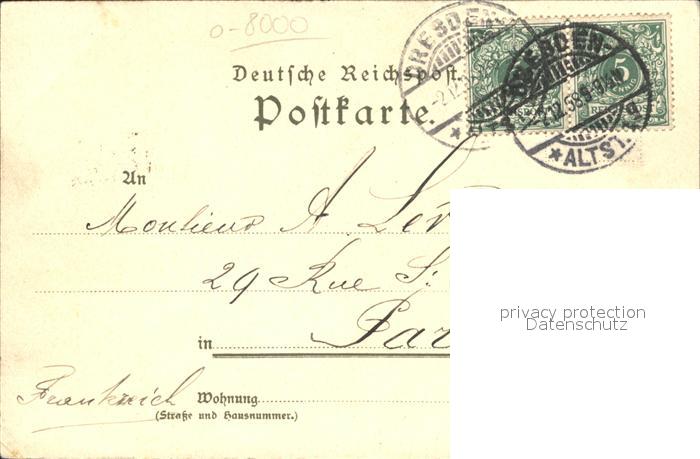 o-8000
Deutsche Reichspost.
Postkarte.
DRESDEN-
ALTST.
DRESDEN-
5
An
Monsieur A. Lév
29 Rue St
Par
in
Frankreich Wohnung
(Straße und Hausnummer.)
privacy protection
Datenschutz